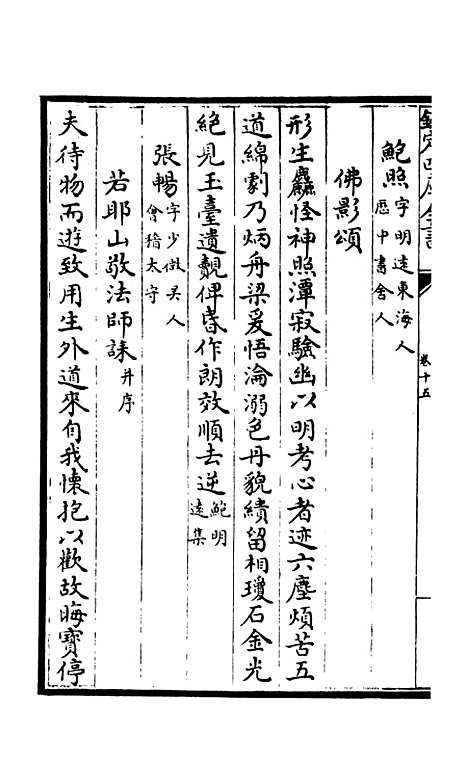 欽定四庫全書
卷十五
鮑照字明遠東海人歷中書舍人
佛影頌
形生麤怪神照潭寂驗幽以明考心者迹六塵煩苦五
道綿劇乃炳舟梁爰悟淪溺色丹貌繢留相瓊石金光
絶見玉臺遺覿俾昏作朗效順去逆鮑明遠集
張暢字少微吳人會稽太守
若耶山敬法師誄并序
夫待物而遊致用生外道來自我懷抱以歡故晦寶停